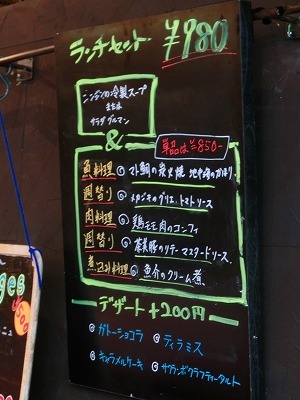 ランチセット ¥980
ニンジンの冷製スープ
または
サラダグルマン
&
単品は¥850-
魚料理 ◎ マト鯛の炭火焼 地中海のかおり
週替り ◎ メカジキのグリエ、トマトソース
肉料理 ◎ 鶏モモ肉のコンフィ
週替り ◎ 豚のソテーマスタードソース
煮込み料理 ◎ 魚介のクリーム煮
デザート +200円
◎ ガトーショコラ ◎ ティラミス
◎ キャラメルケーキ ◎ サクランボクラフティータルト
ges
500